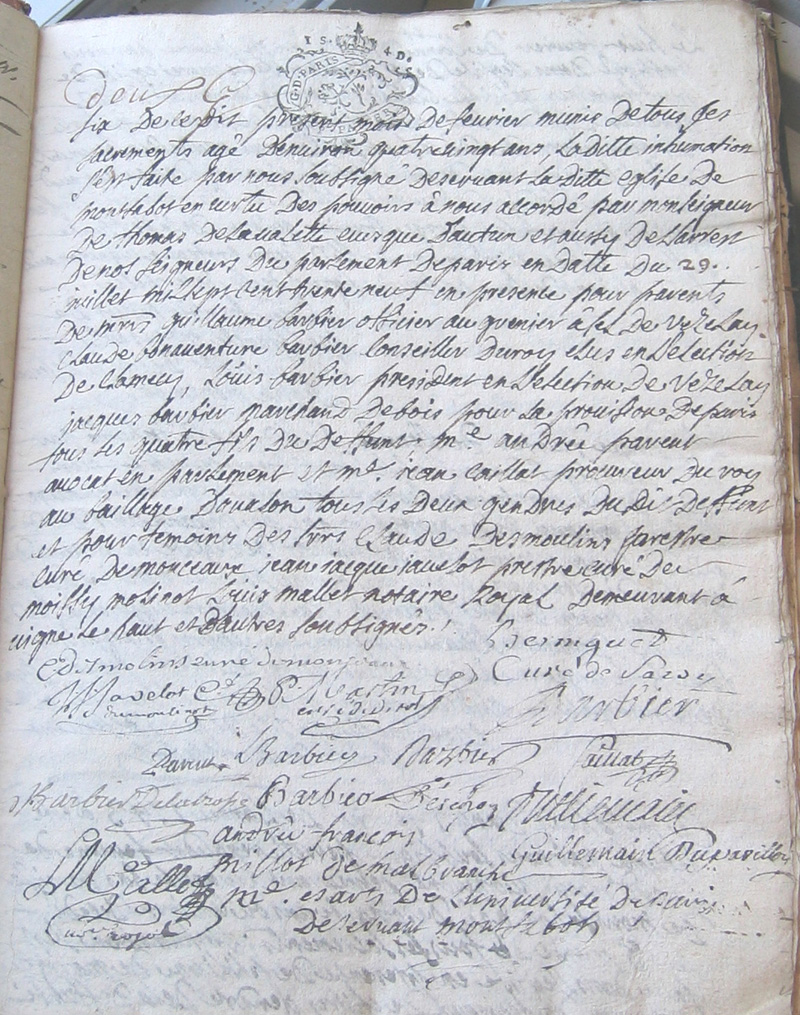 1 S. 4 D.
G. D. PARIS
deux
six de cedit present mois de fevrier munis de tous ses
sacrements agé denviron quatrevingt ans, laditte inhumation
s'est faite par nous soubsigné deservant la ditte eglise de
montsabot en vertu des pouvoirs à nous accordé par monseigneur
de thomas delavalette evesque d'autun et aussy de l'arrest
de nos seigneurs du parlement de paris en datte du 29.
juillet mil sept cent trente neuf en presence pour parents
de mrs guillaume barbier officier au grenier à sel de vezelay
claude bonaventure barbier conseiller du roy elus en l'election
de clamecy, Louis barbier president en l'election de vezelay
jacques barbier marchand de bois pour la provision de paris
tous les quatre fils du deffunt me andré parent
avocat en parlement et me jean caillat procureur du roy
au bailliage d'avalon tous les deux gendres dudit deffunt
et pour temoins des srs claude desmoulins prestre
curé de monceaux jean jacque javelot prestre curé de
moissy molinot Louis mallet notaire Royal demeurant à
vigne le haut et d'autres soubsignés.
C desmolins curé de monceaux
curé de
Javelot C. de moulinot
Martin
Barbier
Parent Barbier Barbier Caillat
Barbier Barbier
andrée françois
Guillemain
Mallet
millot de malbranche
me. es arts de l'université de paris
nore. royal
deservant montsabot